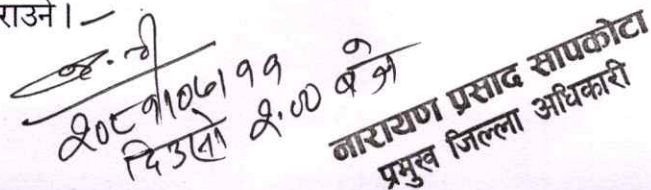 राउने ।
२०८१।०७।११
दिउसो २.०० बजे
नारायण प्रसाद सापकोटा
प्रमुख जिल्ला अधिकारी